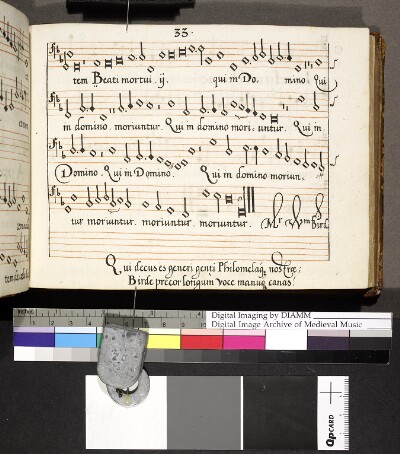 33.
tem Beati mortui ij. qui in Do. mino Qui
in domino moriuntur. Qui in domino mori. untur. Qui in
Domino. Qui in Domino. Qui in domino moriun.
tur moriuntur. moriuntur. moriuntur. Mr Wm Bird.
Qui decus es generi genti Philomelaq nostrae:
Birde precor longum voce manuq canas.
inches 1 2 3 4
Digital Imaging by DIAMM
Digital Image Archive of Medieval Music
QPCARD